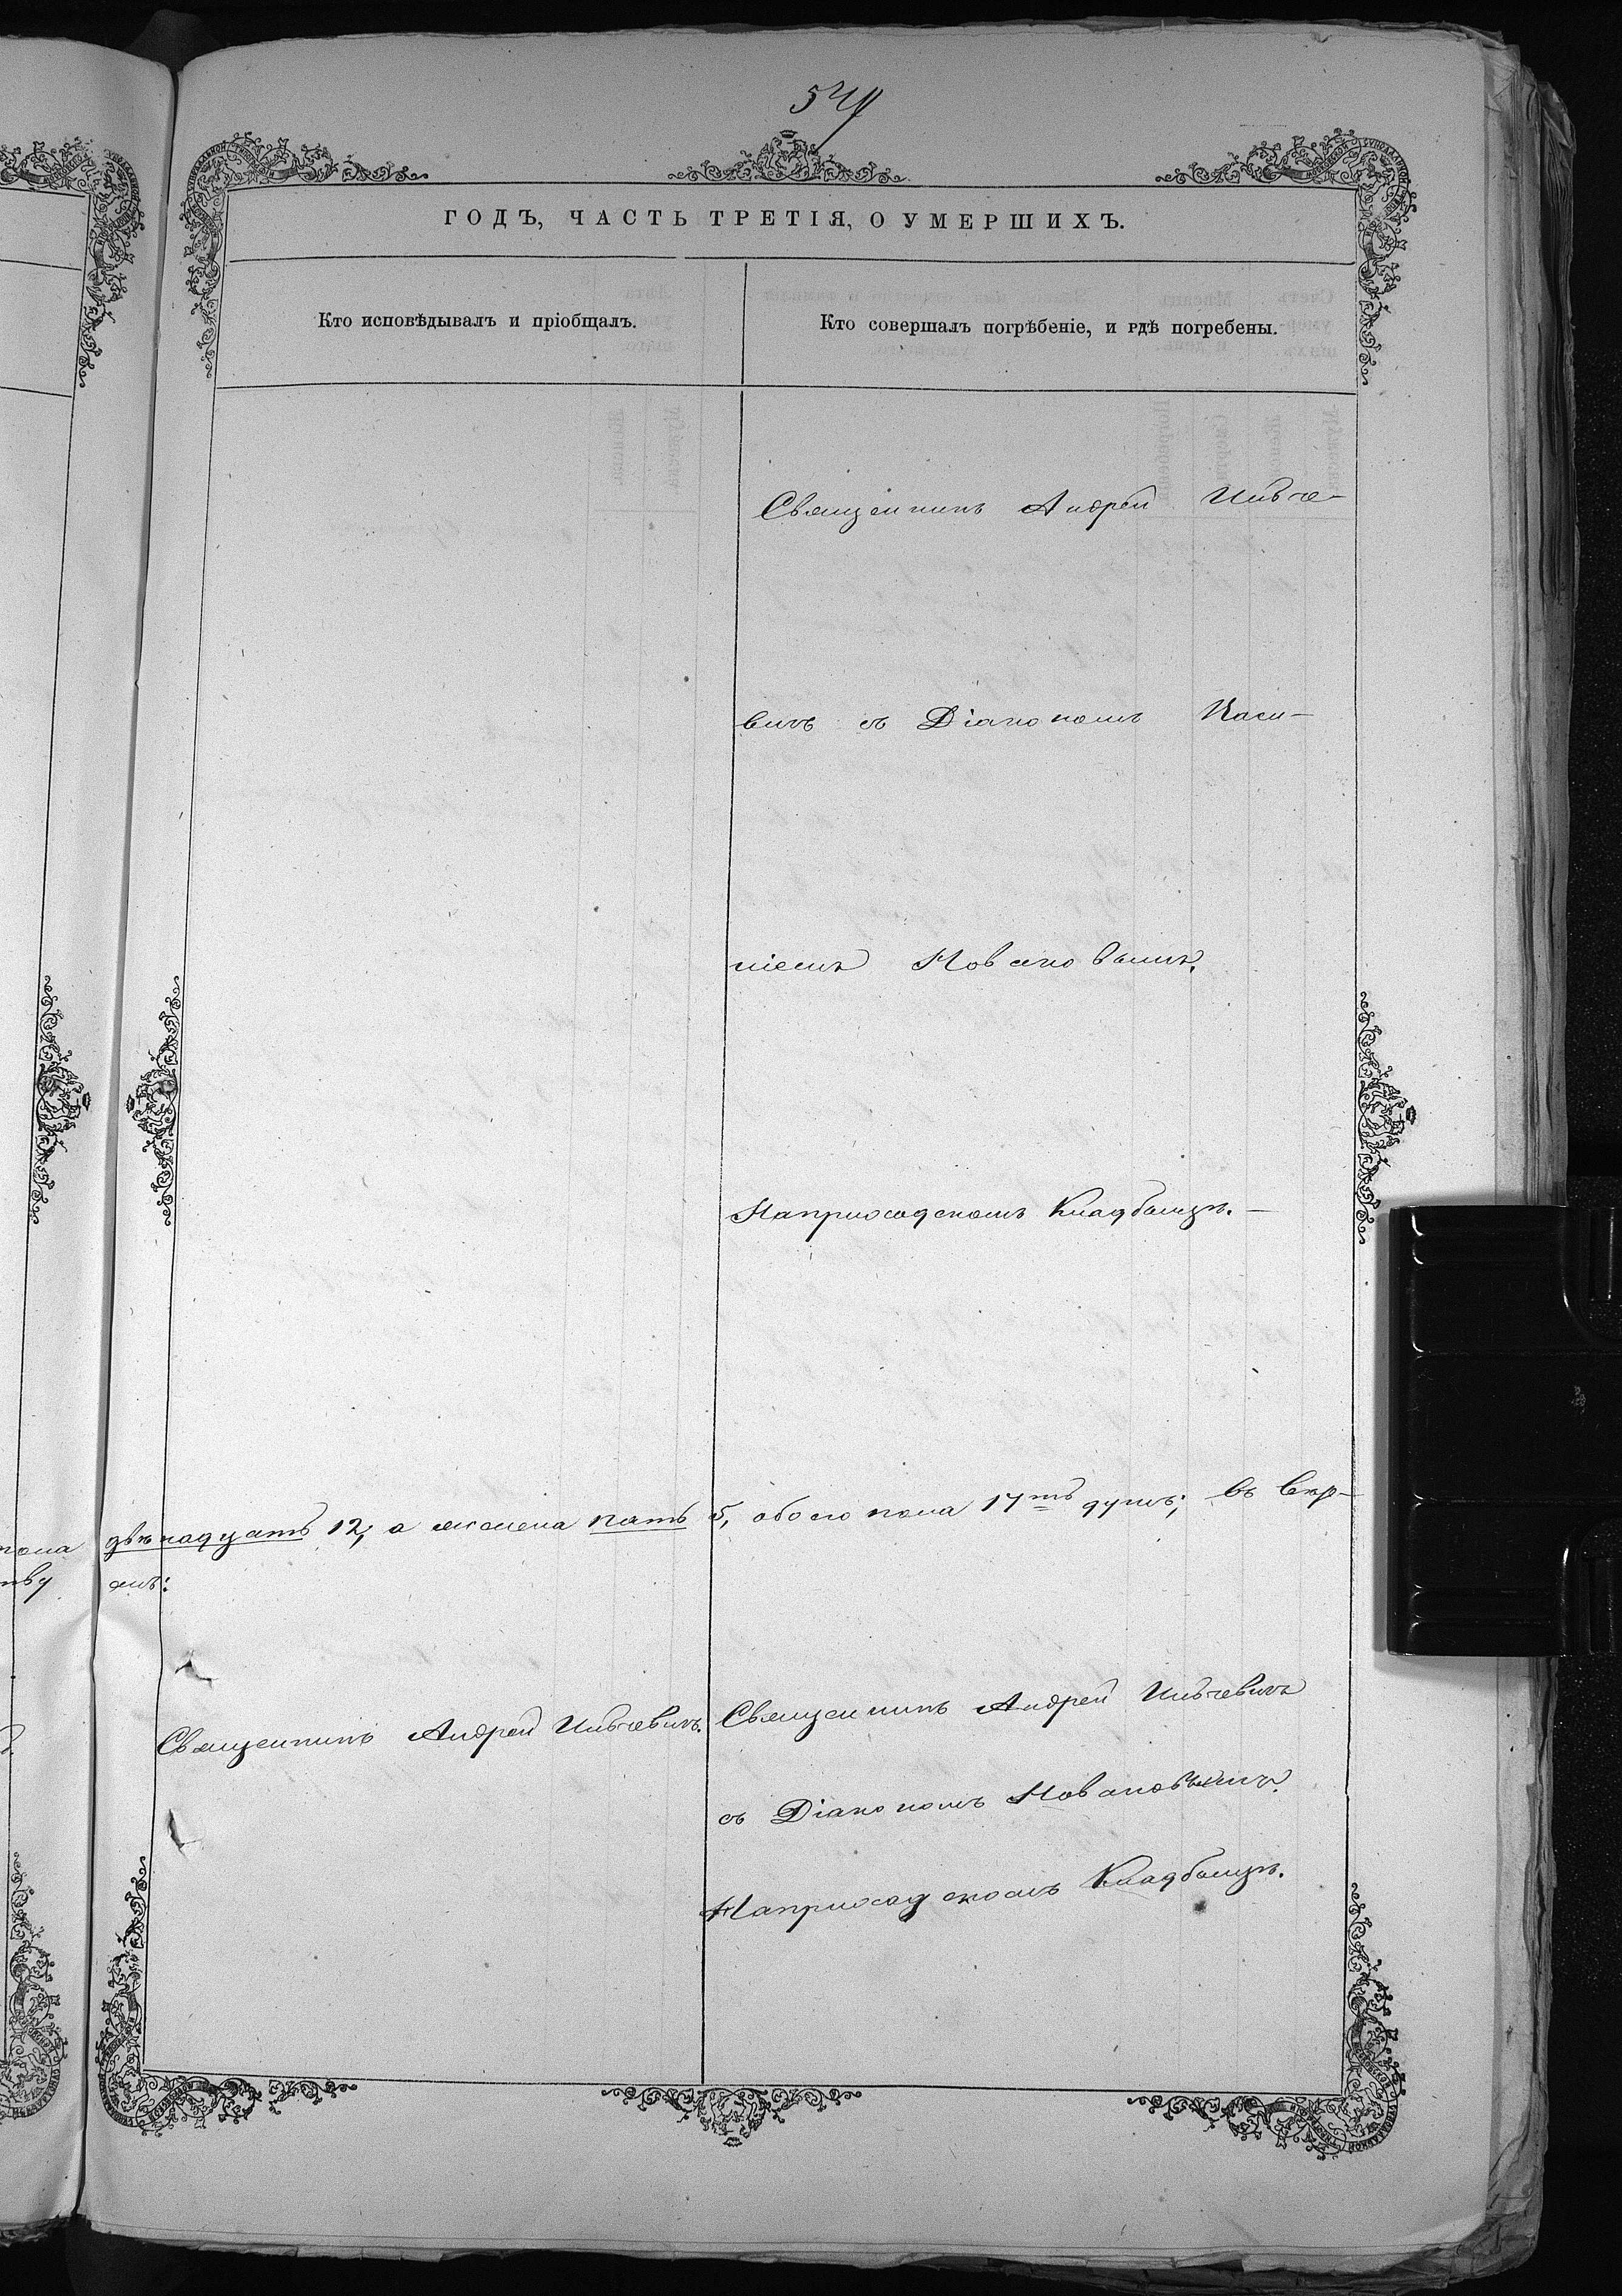 ГОДЪ, ЧАСТЬ ТРЕТІЯ, О УМЕРШИХЪ.
Кто исповѣдывалъ и пріобщалъ.
Кто совершалъ погрѣбеніе, и гдѣ погребены.
Священникъ Андрей Ильче-
вичъ съ Діакономъ
Наприходскомъ Кладбищѣ.-
пола двѣнадцать 12, а женска пять 5, обоего пола 17ть душъ; въ
Священникъ Андрей Ильчевичъ.
Священникъ Андрей Ильчевичъ
съ Діакономъ
Наприходскомъ Кладбищѣ.